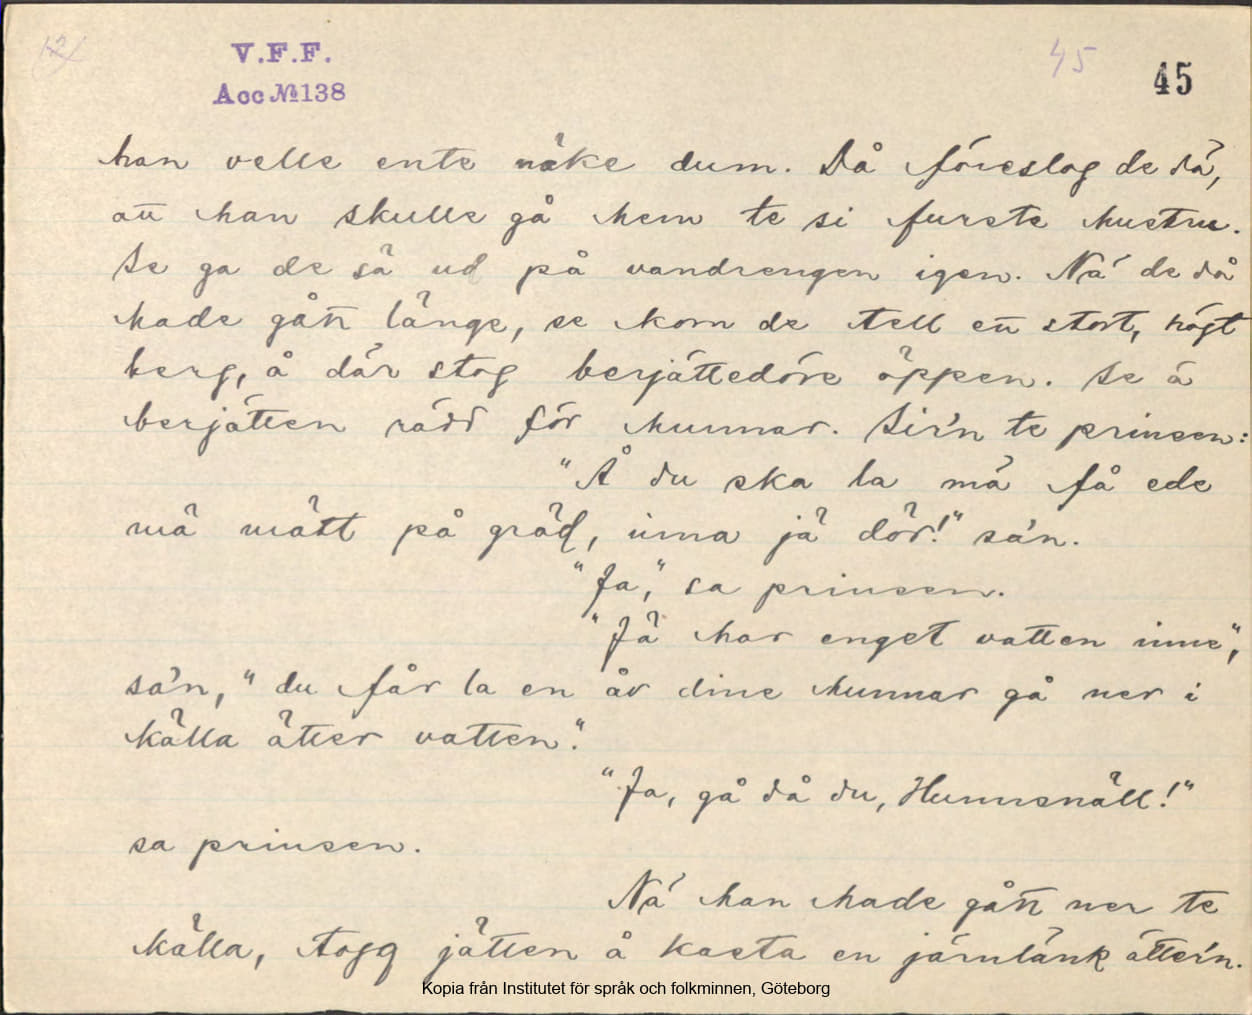 12)
V.F.F.
Acc №138
45
45
han velle ente näke dum. Då föreslog de då,
att han skulle gå hem te si furste hustru.
Se ga de sä ud på vandrengen igen. Nä de då
hade gått länge, se kom de tell ett stort, högt
berg, å där stog berjättedöre öppen. Se ä
berjätten rädd för hunnar. Sir'n te prinsen:
"Å du ska la mä få ede
mä mätt på gräd, inna jä dör!" sa'n.
"Ja," sa prinsen.
"Jä har enget vatten inne",
sa'n, "du får la en åv dine hunnar gå ner i
källa ätter vatten."
"Ja, gå då du, Hunnsnäll!"
sa prinsen.
Nä han hade gått ner te
källa, togg jätten å kasta en järnlänk ätter'n.
Kopia från Institutet för språk och folkminnen, Göteborg